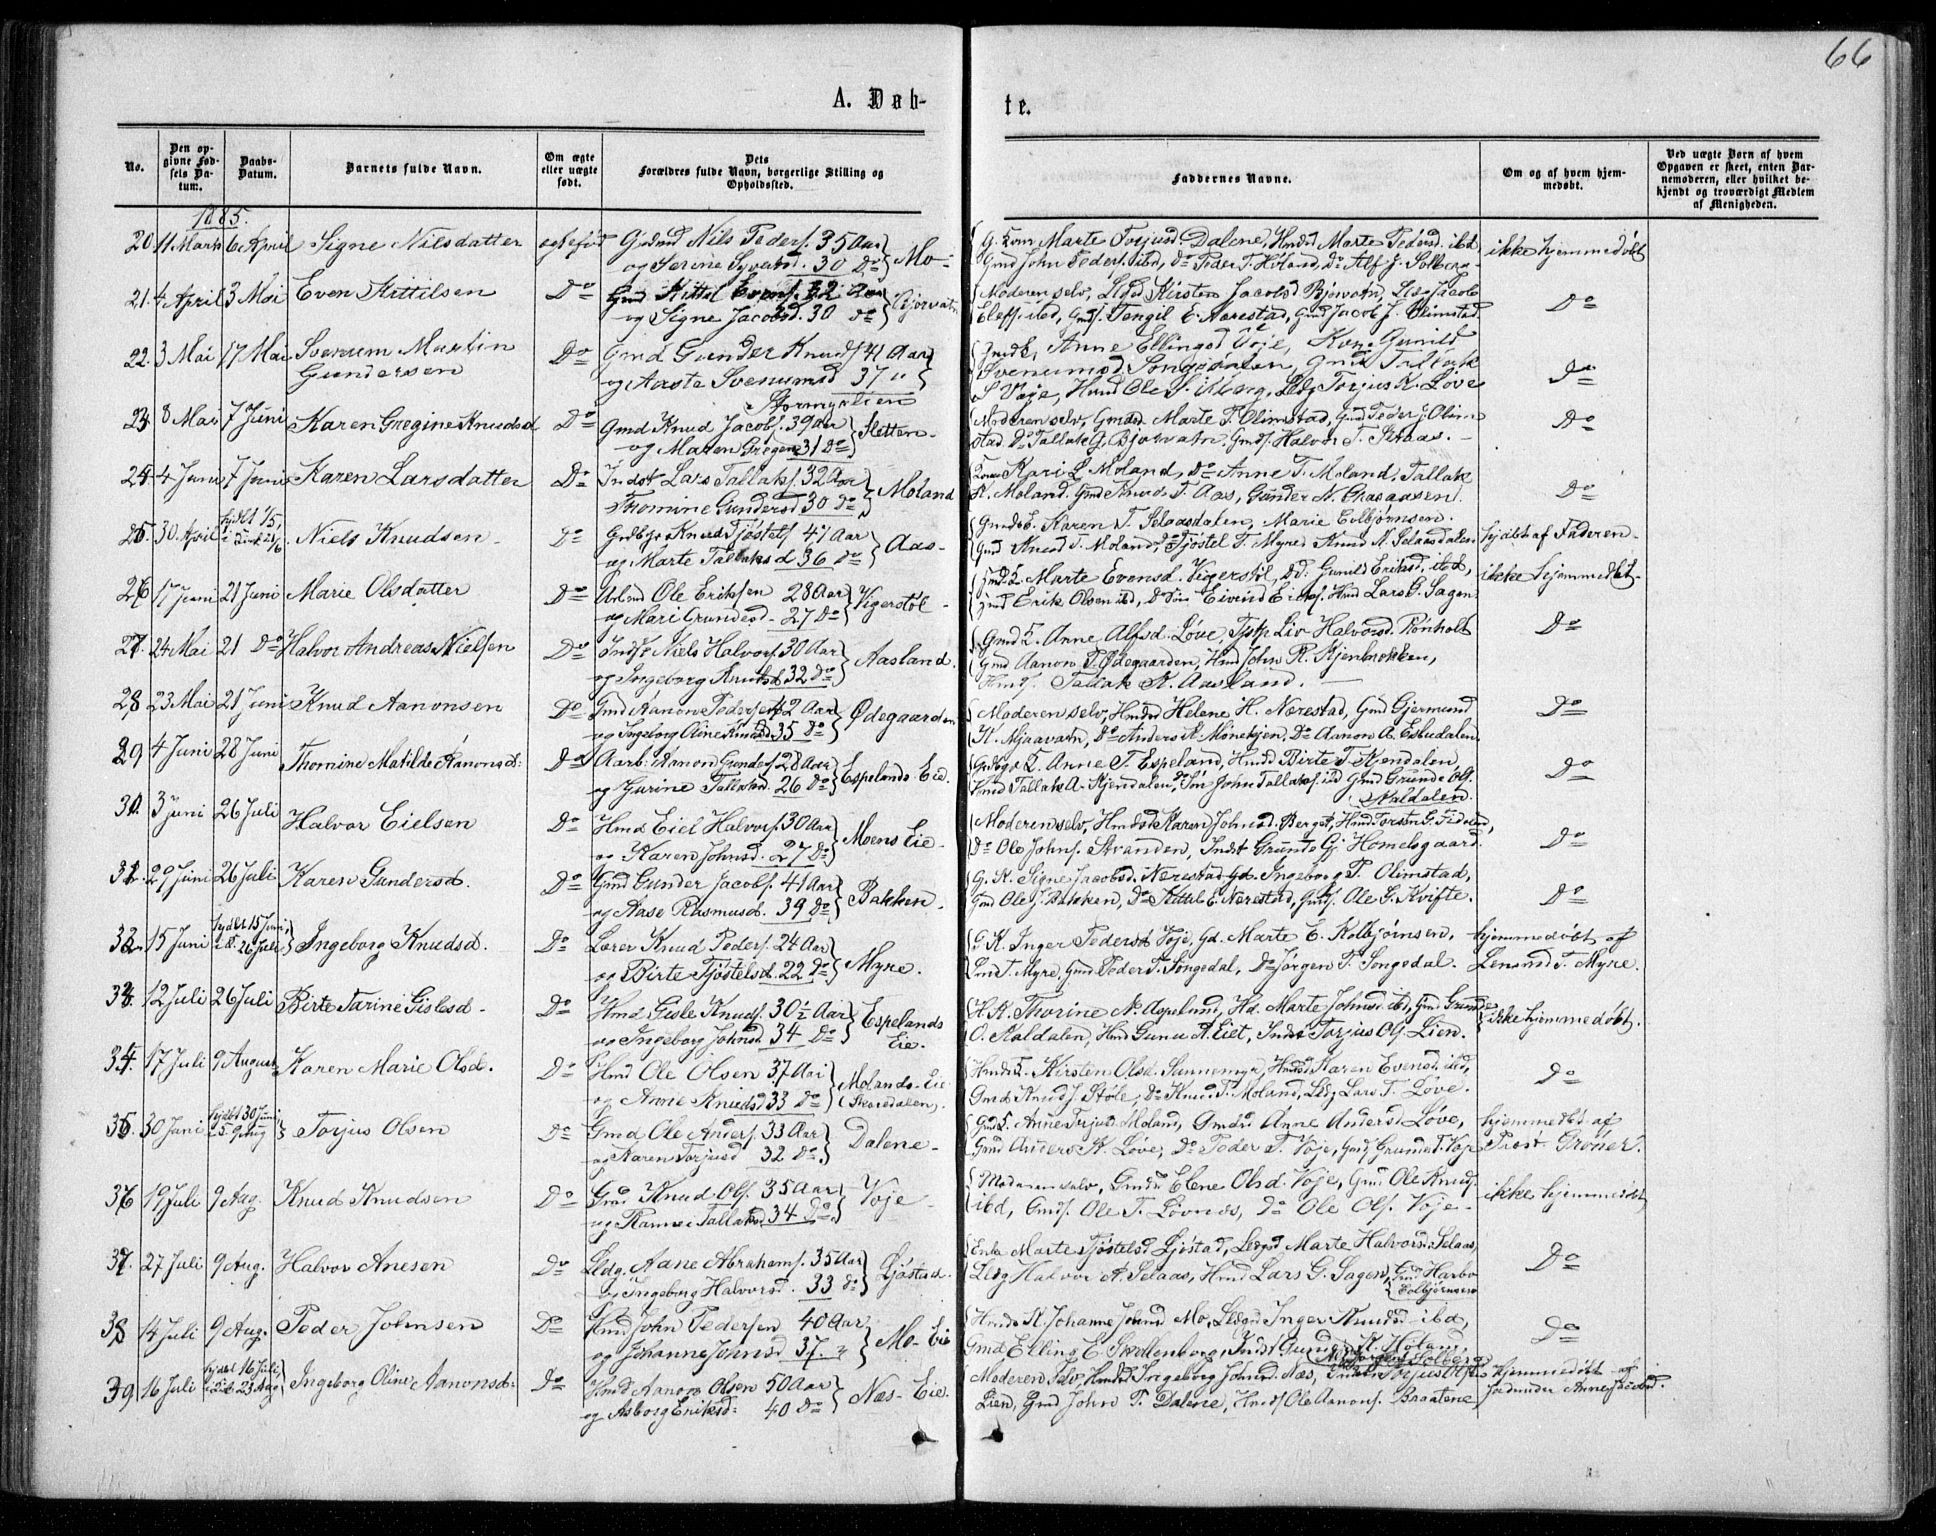 66
A. Døb-
te.
No.
Den op-
givne Fød-
sels Da-
tum.
Daabs-
Datum.
Barnets fulde Navn.
Om ægte
eller uægte
født.
Dets
Forældres fulde Navn, borgerlige Stilling og
Opholdssted.
Faddernes Navne.
Om og af hvem hjem-
medøbt.
Ved uægte Børn af hvem
Opgaven er skeet, enten Bar-
nemoderen, eller hvilket be-
kjendt og troværdigt Medlem
af Menigheden.
1885.
20. 11 Marts 6 April Signe Nilsdatter ægtefød Gmd Nils Peders. 35 Aar
og Serine Syversd. 30 Do Mo-
G. Kone Marte Torjusd. Dalene, Hmds Marte Pedersd. ibd
Gmd John Peders. ibd, Do Peder T. Høland, Do Alf J. Solberg
ikke hjemmedøbt
21. 4 April 3 Mai Even Kittilsen Do Gmd Kittel Evens. 32 Aar
og Signe Jacobsd. 30 Do Bjorvatn
Moderen selv, Ldgd Kirsten Jacobsd Bjorvatn, Ldg Jacob
Elefs. ibd, Gmds. Tengil E. Nærestad, Gmd Jacob J. Olimstad
Do
22. 3 Mai 17 Mai Svenum Martin
Gundersen
Do Gmd Gunder Knuds. 41 Aar
og Aaste Svenumsd 37 "
Stormyrlien
Gmdk, Anne Ellingsd Voje, Kone Gunild
Svenumsd Songedalen, Gmds Tallak
S Voje, Hmd Ole S. Ulberg, Ldg Torjus K. Løve
Do
23. 8 Mai 7 Juni Karen Gregine Knudsd Do Gmd Knud Jacobs. 39 Aar
og Maren Gregers 31 Do Sletten-
Moderen selv, Gmds Marte T. Olimstad, Gmd Peder J. Olim-
stad, Do Tallak G. Bjorvatn, Gmds. Halvor T. Selaas.
Do
24. 4 Juni 7 Juni Karen Larsdatter Do Indst Lars Tallaks. 32 Aar
Thomine Gundersd 30 Do Moland
Kone Kari L Moland, Do Anne T. Moland, Tallak
K. Moland, Gmd Knud T. Aas, Gunder N. Graaaasen
Do
25. 30 April hjdbt 1/5, i Kirk 21/6 Niels Knudsen Do Gmd Knud Tjøstels. 47 Aar
og Marte Tallaksd 36 Do Aas-
Gmds K. Karen T. Selaasdalen, Marie Eolbjørnsen.
Gmd Knud T. Moland, Do Tjøstel T. Myre, Knud N. Selaasdalen
hjdbt af Faderen-
26. 17 Juni 21 Juni Marie Olsdatter Do Arbmd Ole Eriksen 28 Aar
og Mari Grundesd. 27 Do Vigerstøl-
Gmd K. Marte Evensd. Vigerstøl, Do Gunild Eriksd. ibd,
Gmd Erik Olsen ibd, Do Søn Eivind Eriks. Hmd Lars G. Sagen
ikke hjemmedøbt-
27. 24 Mai 21 Do Halvor Andreas Nielsen Do Indst Niels Halvors. 30 Aar
og Ingeborg Knudsd 32 Do Aasland.
Gmd K. Anne Alfsd. Løve, Tjstp. Liv Halvorsd. Rønholt
Gmd Aanon T. Ødegaarden, Hmd John R. Kjenbekken,
Hmds. Tallak K. Aasland.
Do
28. 23 Mai 21 Juni Knud Aanonsen Do Gmd Aanon Pedersen 42 Aar
og Ingeborg Oline Knudsd 35 Do Ødegaarden
Moderen selv, Hmds Helene H. Nærestad, Gmd Gjermund
K. Mjaavatn, Do Anders K Mønekjen, Do Aanon A. Esbudalen
Do
29. 4 Juni 28 Juni Thomine Matilde Aanonsd: Do Aarb: Aanon Gunders. 28 Aar
og Gurine Tallaksd. 26 Do Espelands Eie.
Gmds K. Anne T. Espeland, Hmds Birte T. Kjendalen,
Hmd Tallak A. Kjendalen, Do Søn John Tallaks. ibd Gmd Grunde O G.
Naldalen.
Do
30. 3 Juni 26 Juli Halvor Eielsen Do Hmd Eiel Halvors. 30 Aar
og Karen Johnsd. 27 Do Moens Eie-
Moderen selv, Hmds Karen Johnsd. Berget, Hmd Torsten G. Fidalen,
Do Ole Johns. Stranden, Indst Grunde Gj. Homelsgaard.
Do
31. 29 Juni 26 Juli Karen Gundersd. Do Gmd Gunder Jacobs. 41 Aar
og Aase Rasmusd. 39 Do Bakken-
G. K. Signe Jacobsd. Nærestad, Gd. Ingeborg P. Olimstad,
Gmd Ole J. Bakken, Do Kittel E. Nærestad, Gmds. Ole G. Kvifte.
Do
32. 15 Juni hjdbt 15 Juni, i K. 26 Juli Ingeborg Knudsd. Do Lærer Knud Peders. 24 Aar
og Birte Tjøstelsd. 22 Do Myre.
G. K. Inger Pedersd Voje, Gd. Marte E. Kolbjørnsen,
Lmd T. Myre, Gmd Peder T. Songedal, Do Jørgen T. Songedal.
hjemmedøbt af
Lensmd T. Myre.
33. 12 Juli 26 Juli Birte Tarine Gislesd- Do Hmd Gisle Knuds. 30 ½ Aar
og Ingeborg Johnsd. 34 Do Espelands
Eie.
H. K. Thorine N. Aspelund, Hd. Marte Johnsd ibd, Gmd Grunde
O. Naldalen, Hmd Gunu A. Eiet, Indst Torjus O G. Lien.
ikke hjemmedøbt.
34. 17 Juli 9 August Karen Marie Olsd. Do Hmd Ole Olsen 37 Aar
og Anne Knudsd 33 Do Molands-Eie
(Skaredalen).
Hmds K. Kirsten Olsd. Sunnemyr, Hmds Karen Evensd. ibd,
Gmd Knud J. Støle, Do Knud T. Moland, Ldg Lars T. Løve.
Do
35. 30 Juni hjdbt 30 Juni, i K. 9 Aug Torjus Olsen Do Gmd Ole Anders. 33 Aar
og Karen Torjusd 32 Do. Dalene-
Gmd K. Anne Torjusd. Moland, Gmds Anne Andersd. Løve,
Gmd Anders K. Løve, Do Peder T. Voje, Gmds. Grunde T. Voje
hjemmedøbt af
Provst Grøner.
36 19 Juli 9 Aug. Knud Knudsen Do Gmd Knud Ols. 35 Aar
og Tallaksd 34 Do. Voje-
Moderen selv, Gmds Elene Olsd. Voje, Gmd Ole Knuds.
ibd, Gmds. Ole T. Løvnes, Do Ole Ols. Voje-
ikke hjemmedøbt
37. 27 Juli 9 Aug. Halvor Anesen Do Ldg. Aane Abrahams. 35 Aar
og Ingeborg Halvorsd. 33 Do Ljøstad.
Enke Marte Tjøstelsd Ljøstad, Ldgd Marte Halvorsd. Selaas,
Ldg Halvor A. Selaas, Hmd Lars G. Sagen, Gmd Harbo
Eolbjørnsen
Do
38 14 Juli 9 Aug. Peder Johnsen Do Hmd John Pedersen 40 Aar
og Johanne Johnsd 37. " Mo-Eie
Hmds K. Johanne Johnsd Mo, Ldgd Inger Knudsd ibd,
Gmd Elling E. Skollenborg, Indst Gunder K. Moland,
Solberg
Do
39 16 Juli hjdbt 16 Juli, i K. 23 Aug Ingeborg Oline Aanonsd: Do Hmd Aanon Olsen 50 Aar
og Asborg Eriksd: 40 Do Næs-Eie.
Moderen selv, Hmds Ingeborg Johnsd. Næs, Torjus Ols.
Lien, Gmd John T. Dalene, Hmds Ole Aanons. Braatene,
hjemmedøbt af
Jordmoder Anne Jacobsd.